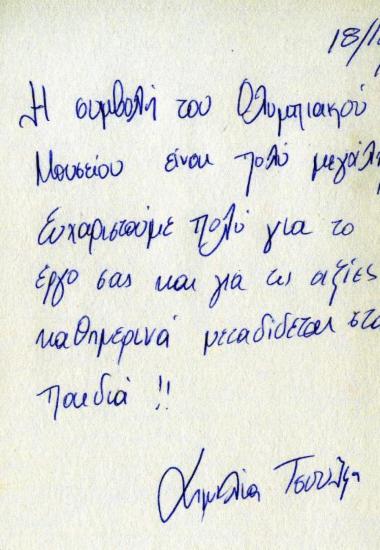 18/1
Η συμβολή του Ολυμπιακού
Μουσείου είναι πολύ μεγάλη
Ευχαριστούμε πολύ για το
έργο σας και για τις αξίες
καθημερινά μεταδίδεται στα
παιδιά !!